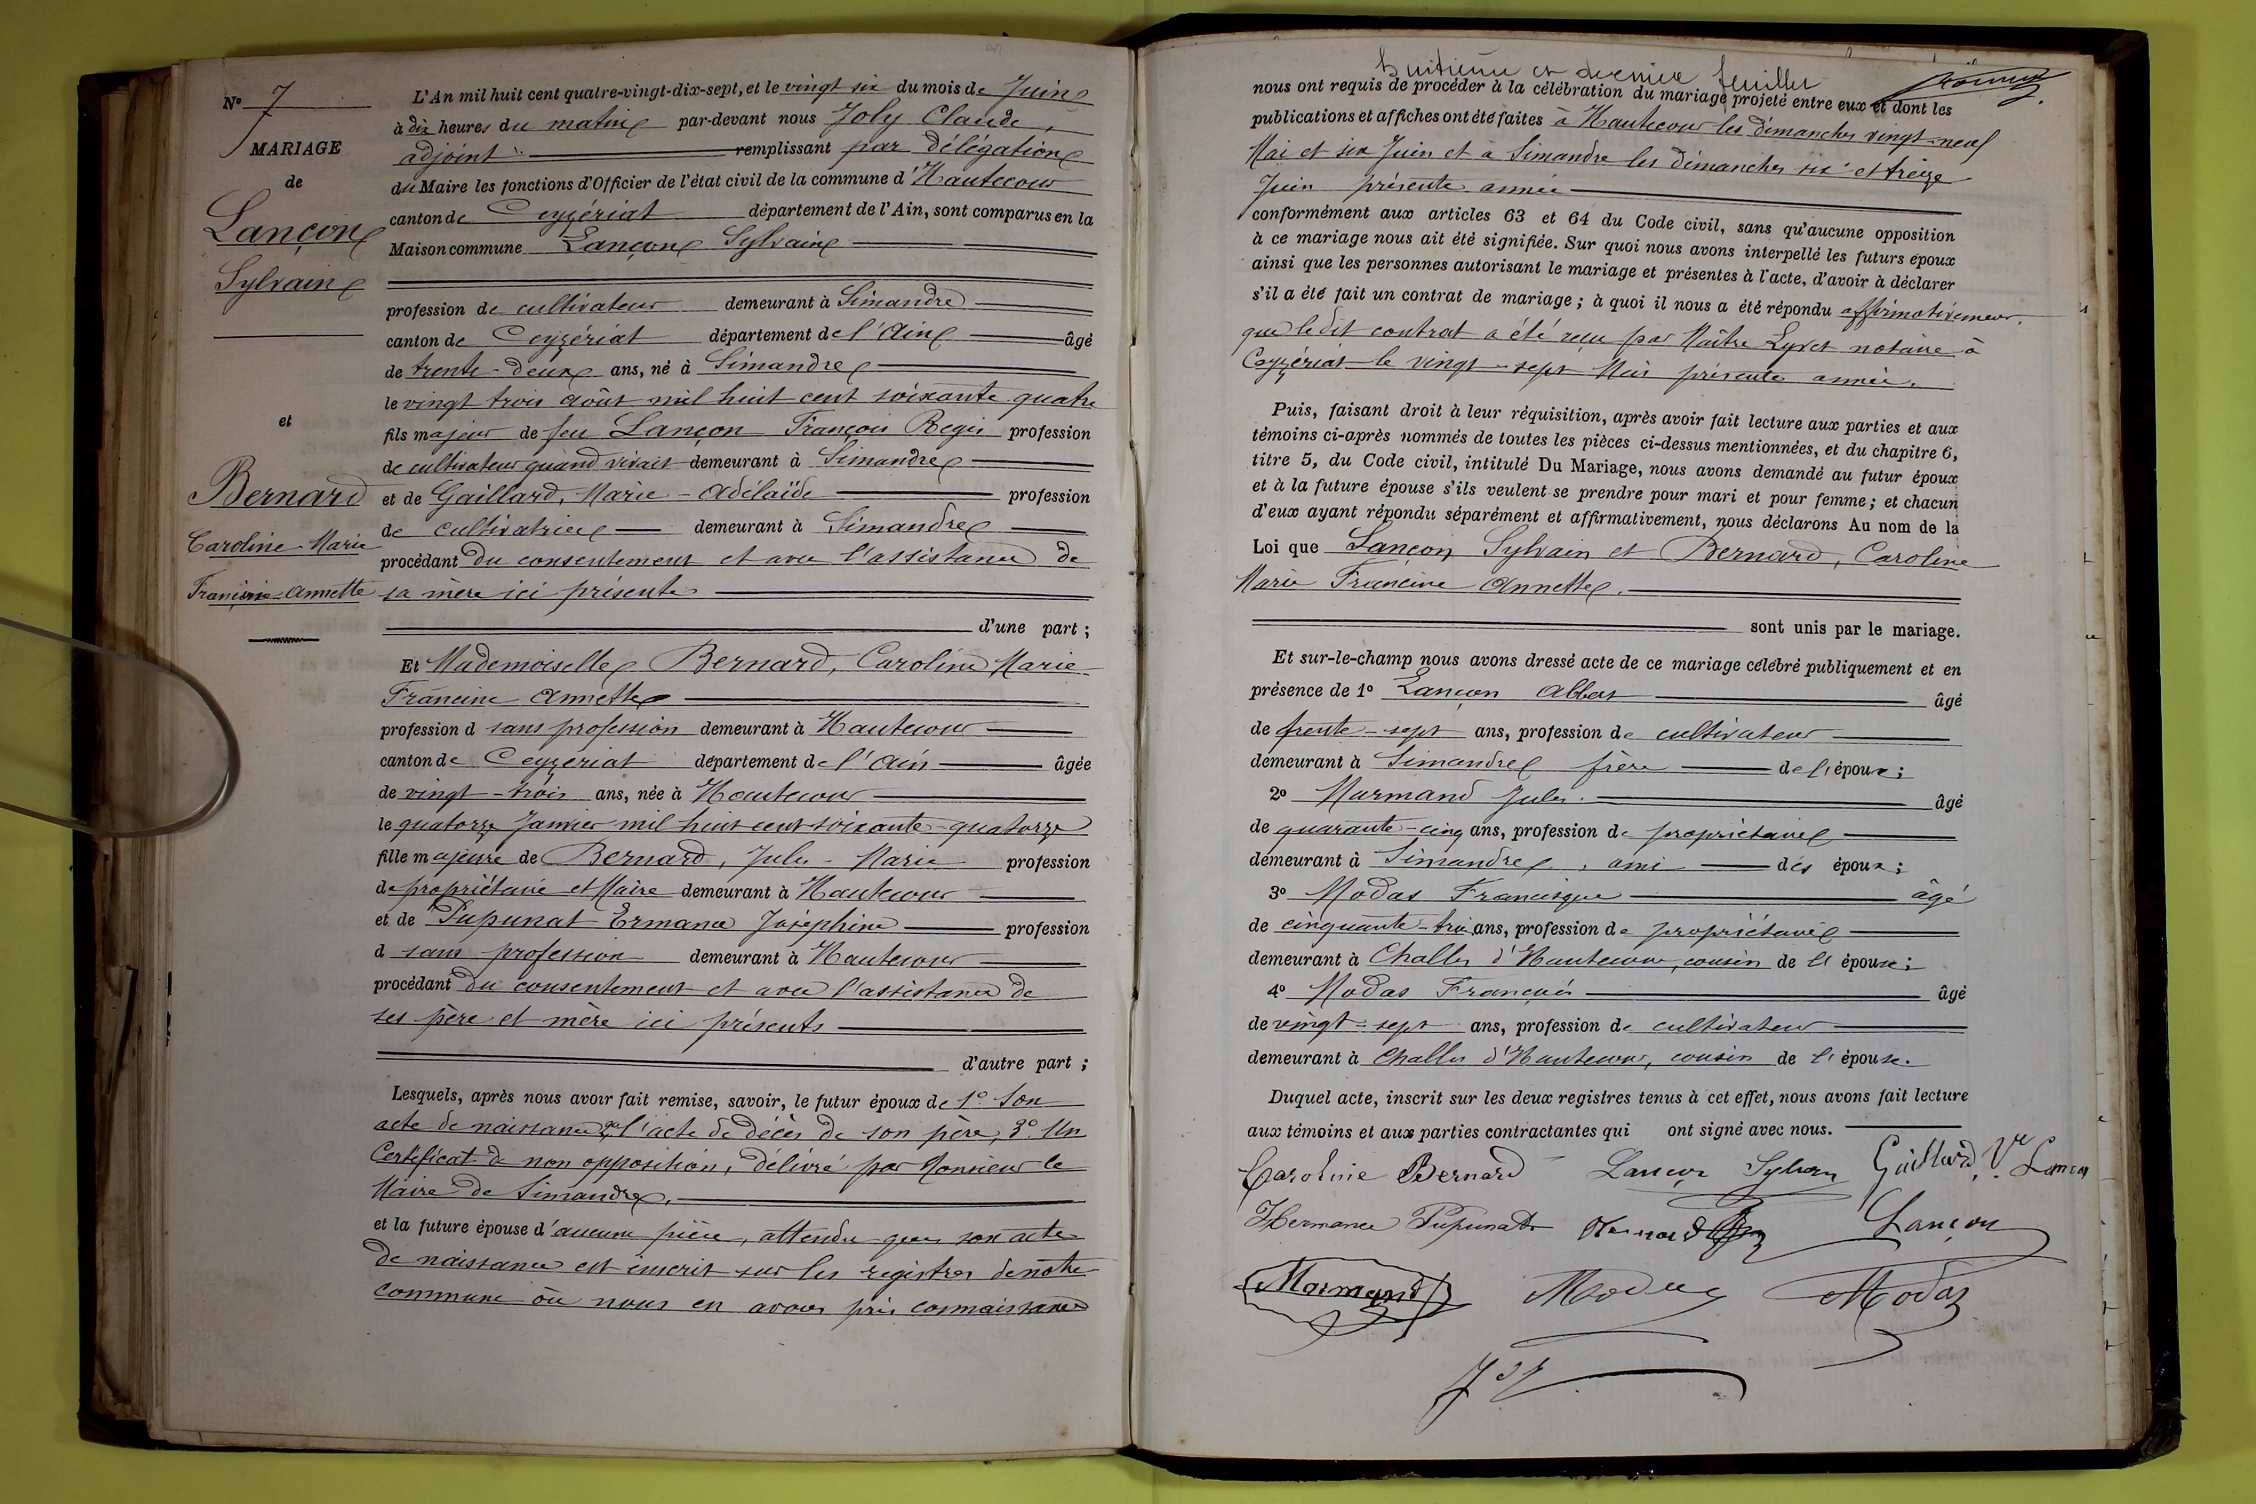 N° 7
MARIAGE
de
Lançon
Sylvain
et
Bernard
Caroline Marie
Francine-Annette
L'An mil huit cent quatre-vingt-dix-sept, et le vingt six du mois de Juin
à dix heures du matin par-devant nous Joly Claude,
adjoint remplissant par délégation
du Maire les fonctions d'Officier de l'état civil de la commune d'Hautecour
canton de Ceyzériat département de l'Ain, sont comparus en la
Maison commune Lançon Sylvain
profession de cultivateur demeurant à Simandre
canton de Ceyzériat département de l'Ain âgé
de trente-deux ans, né à Simandre
le vingt trois août mil huit cent soixante quatre
fils majeur de feu Lançon François Regis profession
de cultivateur quand vivait demeurant à Simandre
et de Gaillard, Marie-Adélaïde profession
de cultivatrice demeurant à Simandre
procédant du consentement et avec l'assistance de
sa mère ici présente
d'une part ;
Et Mademoiselle Bernard, Caroline Marie
Francine Annette
profession d sans profession demeurant à Hautecour
canton de Ceyzériat département de l'Ain âgée
de vingt-trois ans, née à Hautecour
le quatorze Janvier mil huit cent soixante-quatorze
fille majeure de Bernard, Jules-Marie profession
de propriétaire et Maire demeurant à Hautecour
et de Pupunat Ermance Joséphine profession
d sans profession demeurant à Hautecour
procédant du consentement et avec l'assistance de
ses père et mère ici présents
d'autre part ;
Lesquels, après nous avoir fait remise, savoir, le futur époux de 1° Son
acte de naissance 2° l'acte de décès de son père, 3° Un
Certificat de non opposition, délivré par Monsieur le
Maire de Simandre,
et la future épouse d'aucune pièce, attendu que son acte
de naissance est inscrit sur les registres de notre
commune où nous en avons pris connaissance
huitième et dernier feuillet
nous ont requis de procéder à la célébration du mariage projeté entre eux et dont les
publications et affiches ont été faites à Hautecour les dimanches vingt-neuf
Mai et six Juin et à Simandre les dimanches six et treize
Juin présente année
conformément aux articles 63 et 64 du Code civil, sans qu'aucune opposition
à ce mariage nous ait été signifiée. Sur quoi nous avons interpellé les futurs époux
ainsi que les personnes autorisant le mariage et présentes à l'acte, d'avoir à déclarer
s'il a été fait un contrat de mariage ; à quoi il nous a été répondu affirmativement,
que le dit contrat a été reçu par Maître notaire à
Ceyzériat le vingt-sept Mai présente année.
Puis, faisant droit à leur réquisition, après avoir fait lecture aux parties et aux
témoins ci-après nommés de toutes les pièces ci-dessus mentionnées, et du chapitre 6,
titre 5, du Code civil, intitulé Du Mariage, nous avons demandé au futur époux
et à la future épouse s'ils veulent se prendre pour mari et pour femme ; et chacun
d'eux ayant répondu séparément et affirmativement, nous déclarons Au nom de la
Loi que Lançon Sylvain et Bernard, Caroline
Marie Francine Annette.
sont unis par le mariage.
Et sur-le-champ nous avons dressé acte de ce mariage célébré publiquement et en
présence de 1° Lançon Albert âgé
de trente-sept ans, profession de cultivateur
demeurant à Simandre frère de l'époux ;
2° Marmand Jules. âgé
de quarante-cinq ans, profession de propriétaire
demeurant à Simandre, ami des époux ;
3° Modas Francisque âgé
de cinquante-trois ans, profession de propriétaire
demeurant à Challes d'Hautecour, cousin de l'épouse ;
4° Modas François âgé
de vingt-sept ans, profession de cultivateur
demeurant à Challes d'Hautecour, cousin de l'épouse.
Duquel acte, inscrit sur les deux registres tenus à cet effet, nous avons fait lecture
aux témoins et aux parties contractantes qui ont signé avec nous.
Caroline Bernard Lançon Sylvain Gaillard Ve Lançon
Hermance Pupunat Bernard Lançon
Marmand Modas Modas